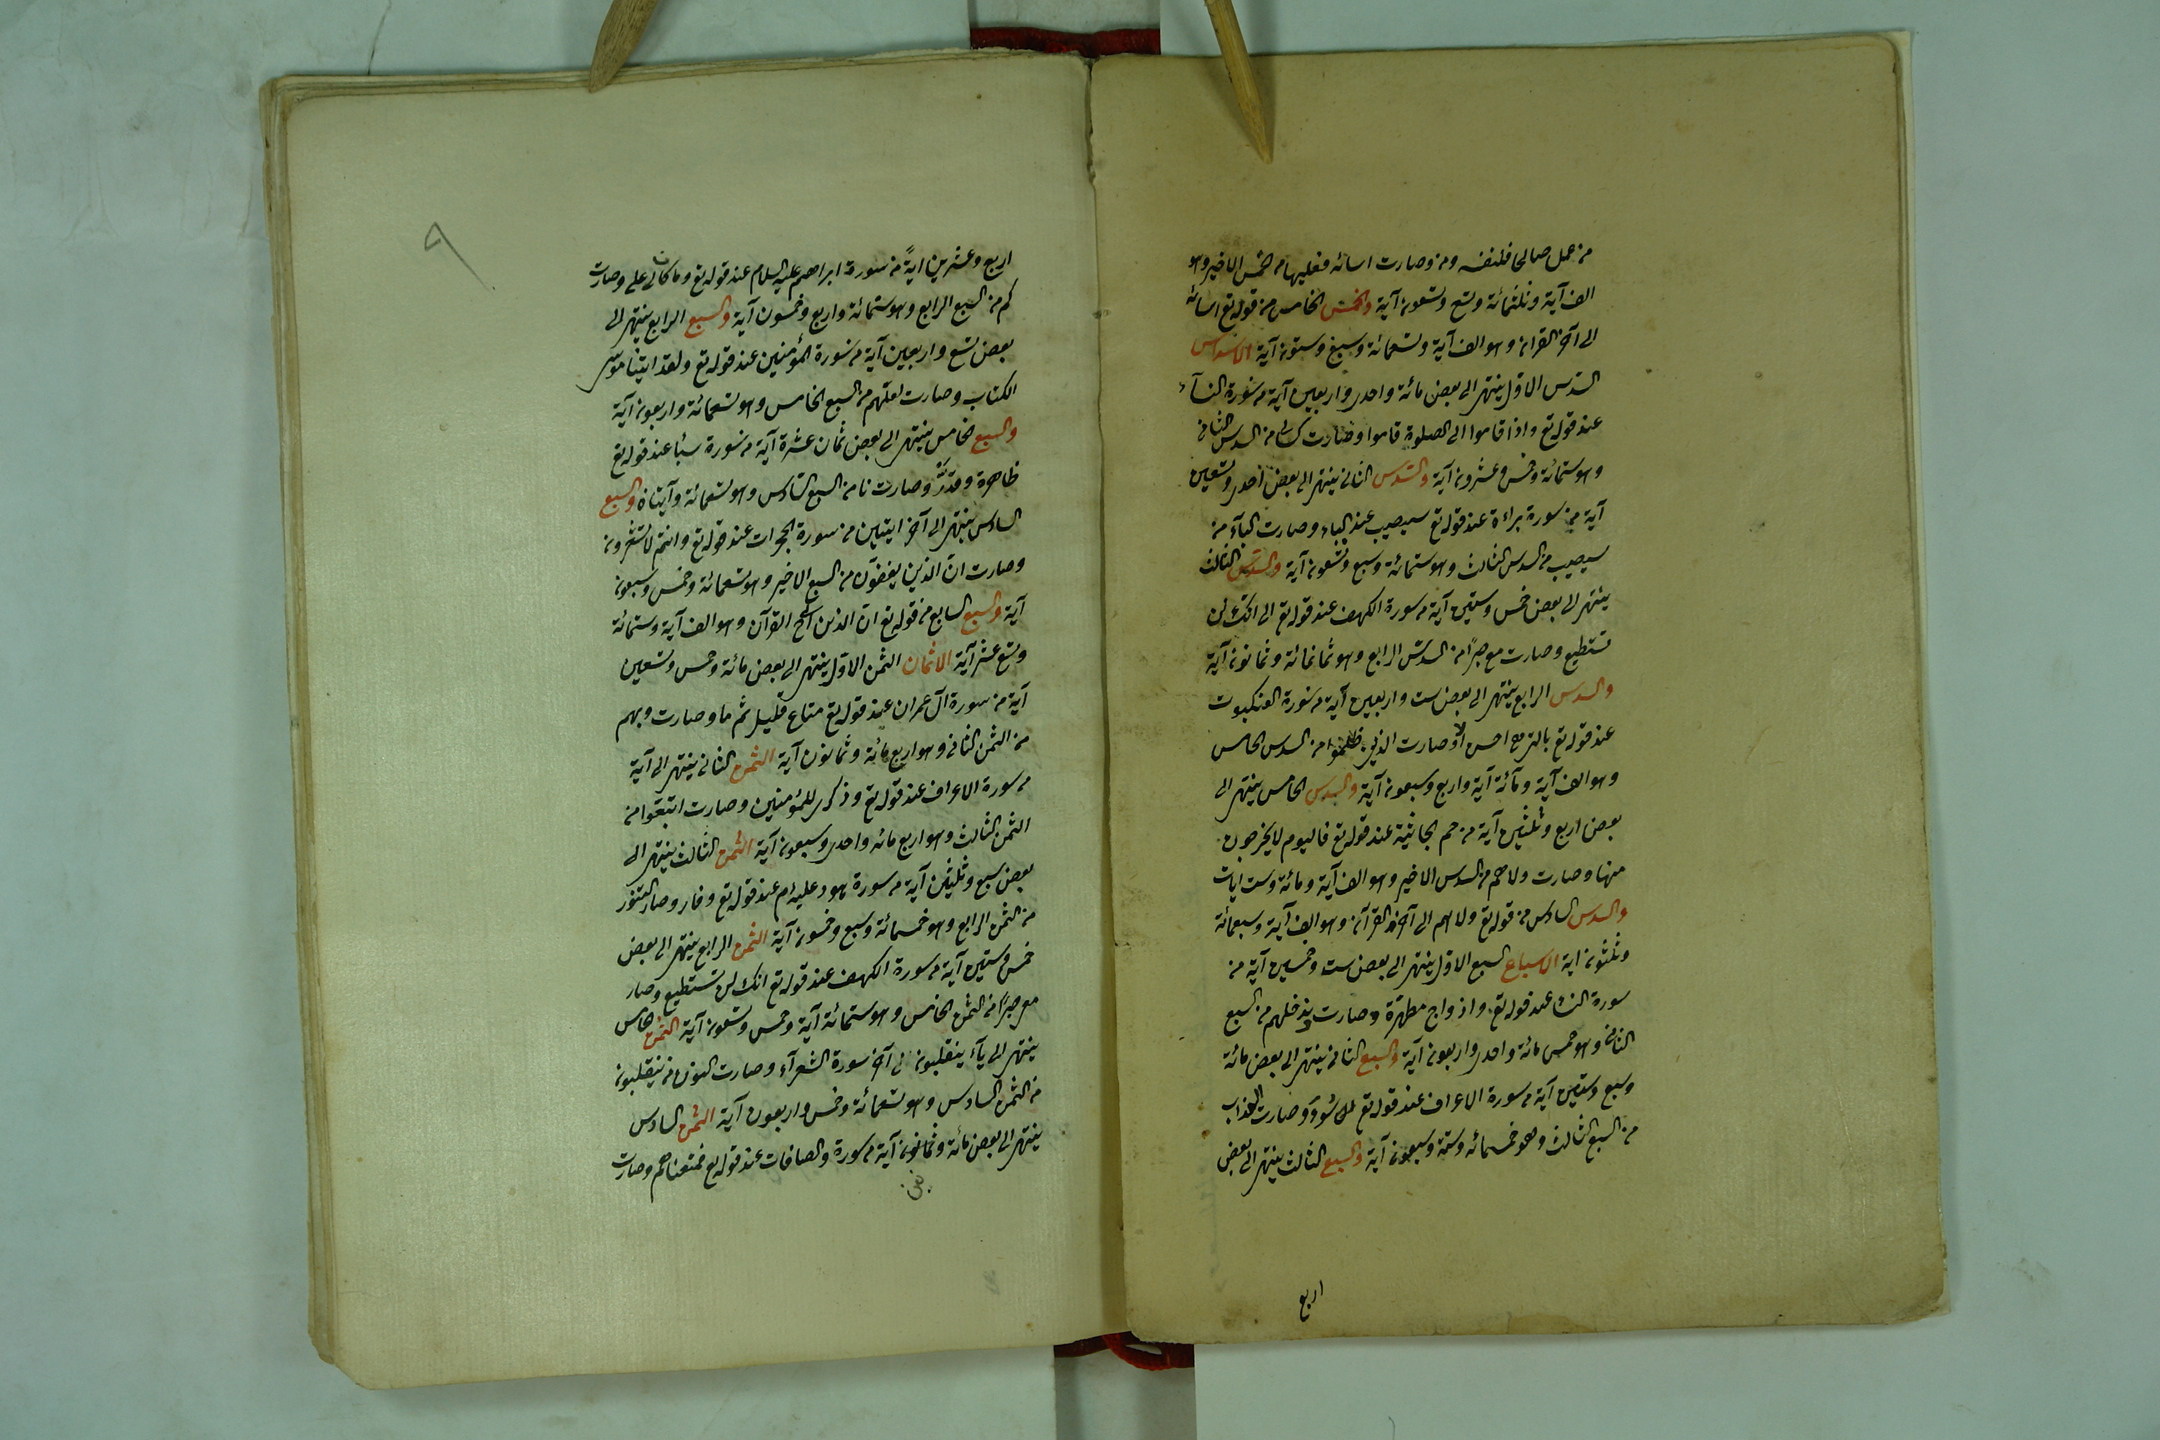 من عمل صالحا فلنفسه ومن وصارت اسائه فعليها من الخمس الاخير وهو
الف آية وثلثمائة وتسع وتسعون آية والخمس الخامس من قوله تع اسائه
الى آخر القران وهو الف آية وتسعمائة وسبع وستون آية الاسداس
السدس الاول ينتهى الى بعض مائة واحدى واربعين آية من سورة النسآء
عند قوله تع واذا قاموا الى الصلوة قاموا وصارت كسالى من السدس الثانى
وهو ستمائة وخمس وعشرون آية والسدس الثانى ينتهى الى بعض احدى وتسعين
آية من سورة براءة عند قوله تع سيصيب عند الياء وصارت الباء من
سيصيب من السدس الثالث وهو ستمائة وسبع وتسعون آية والسدس الثالث
ينتهى الى بعض خمس وستين آية من سورة الكهف عند قوله تع الى انك لن
تستطيع وصارت مع صبرا من السدس الرابع وهو ثمانمائة وثمانون آية
والسدس الرابع ينتهى الى بعض ست واربعين آية من سورة العنكبوت
عند قوله تع بالتى هى احسن الا وصارت الذين ظلموا من السدس الخامس
وهو الف آية ومائة آية واربع وسبعون آية والسدس الخامس ينتهى الى
بعض اربع وثلثين آية من حم الجاثية عند قوله تع فاليوم لا يخرجون
منها وصارت ولا هم من السدس الاخير وهو الف آية ومائة وست ايات
والسدس السادس من قوله تع ولا هم الى آخر القرآن وهو الف آية وسبعمائة
وثلثون اية الاسباع السبع الاول ينتهى الى بعض ست وخمسين آية من
سورة النساء عند قوله تع وازواج مطهرة وصارت وندخلهم من السبع
الثانى وهو خمس مائة واحدى واربعون آية والسبع الثانى ينتهى الى بعض مائة
وسبع وستين آية من سورة الاعراف عند قوله تع سوء وصارت العذاب
من السبع الثالث وهو خمسمائة وستة وسبعون آية والسبع الثالث ينتهى الى بعض
اربع
٩
اربع وعشرين اية من سورة ابراهيم عليه السلام عند قوله تع وما كان لى على وصارت
كم من السبع الرابع وهو ستمائة واربع وخمسون آية والسبع الرابع ينتهى الى
بعض تسع واربعين آية من سورة المؤمنين عند قوله تع ولقد اتينا موسى
الكتاب وصارت لعلهم من السبع الخامس وهو تسعمائة واربعون آية
والسبع الخامس ينتهى الى بعض ثمان عشرة آية من سورة سبأ عند قوله تع
ظاهرة وقدر وصارت نا من السبع السادس وهو تسعمائة وآيتان والسبع
السادس ينتهى الى آخر ايتين من سورة الحجرات عند قوله تع وانتم لا تشعرون
وصارت ان الذين يغضون من السبع الاخير وهو تسعمائة وخمس وسبعون
آية والسبع السابع من قوله تع ان الذين الى آخر القرآن وهو الف آية وستمائة
وتسع عشر آية الاثمان الثمن الاول ينتهى الى بعض مائة وخمس وتسعين
آية من سورة آل عمران عند قوله تع متاع قليل ثم ما وصارت ويهم
من الثمن الثانى وهو اربع مائة وثمانون آية الثمن الثانى ينتهى الى آية
من سورة الاعراف عند قوله تع وذكرى للمؤمنين وصارت اتبعوا من
الثمن الثالث وهو اربع مائه واحدى وسبعون آية الثمن الثالث ينتهى الى
بعض سبع وثلثين آية من سورة هود عليه م عند قوله تع وفار وصار التنور
من الثمن الرابع وهو خمسمائة وسبع وخمسون آية الثمن الرابع ينتهى الى بعض
خمس وستين آية من سورة الكهف عند قوله تع انك لن تستطيع وصار
معى صبرا من الثمن الخامس وهو ستمائة آية وخمس وتسعون آية الثمن الخامس
ينتهى الى يآء ينقلبون الى آخر سورة الشعرآء وصارت النون من ينقلبون
من الثمن السادس وهو تسعمائة وخمس واربعون آية الثمن السادس
ينتهى الى بعض مائة وثمانون آية من سورة والصافات عند قوله تع فمتعناهم وصارت